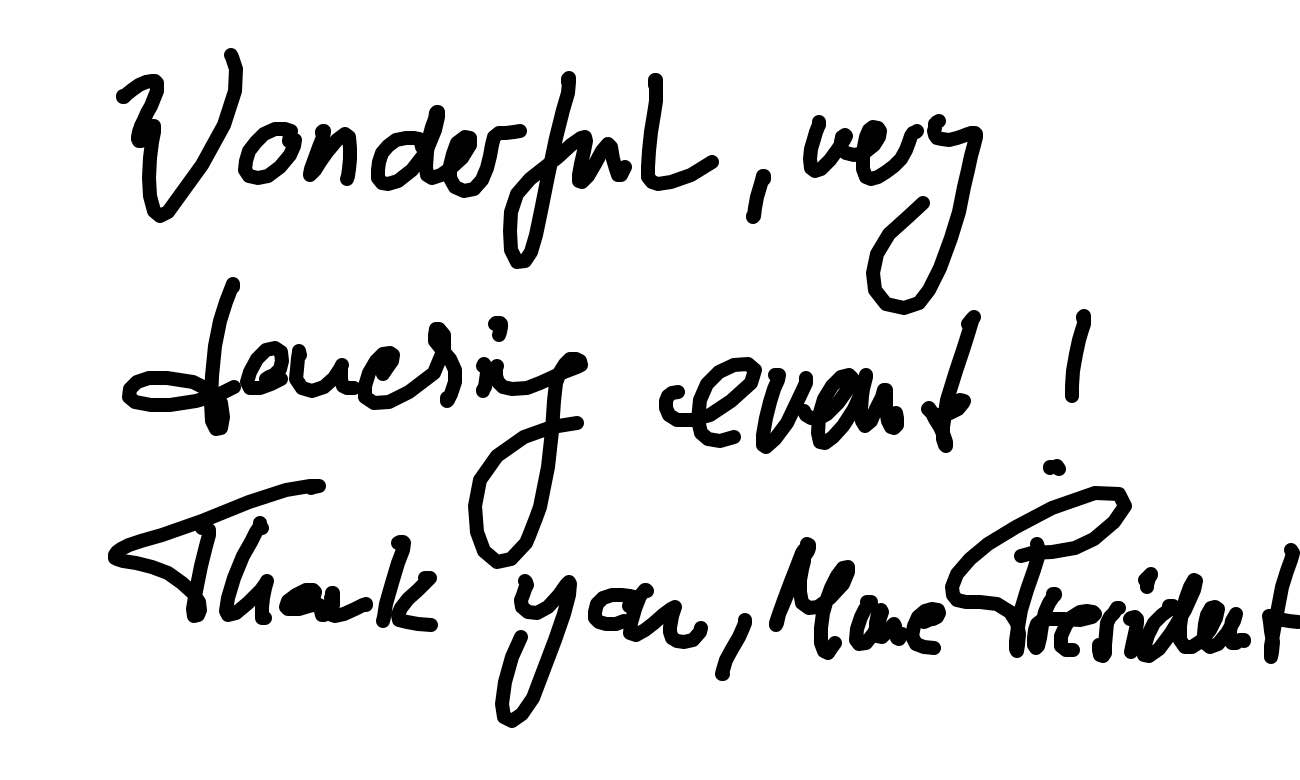 Wonderful, very
touching event!
Thank you, Mme President